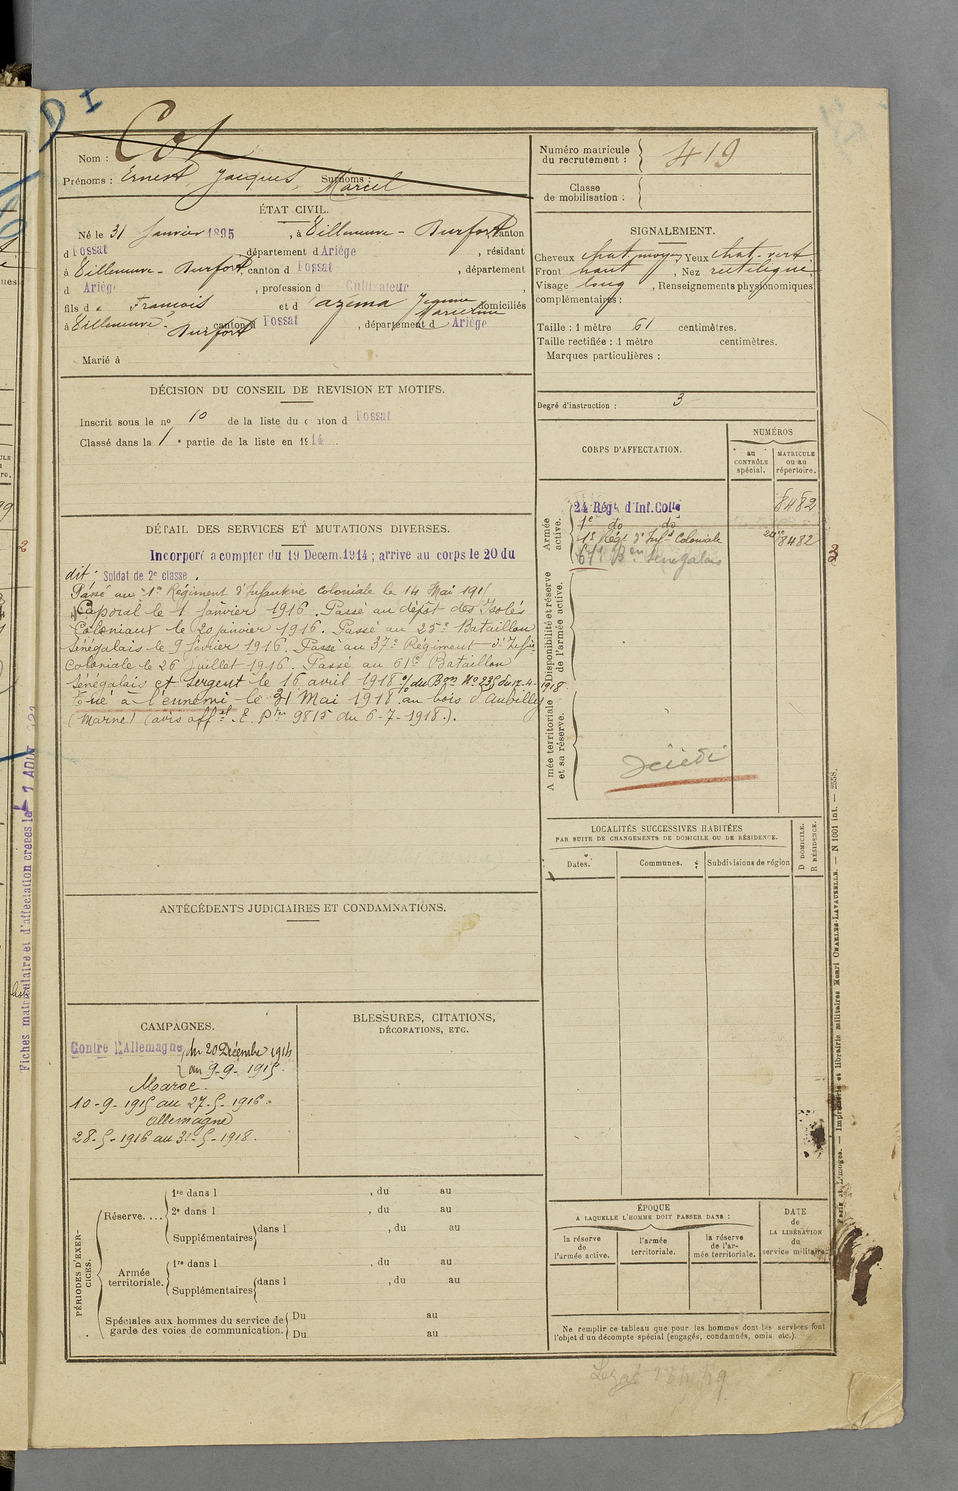 D I
Nom : Cot
Prénoms : Ernest Jacques Surnoms : Marcel
Numéro matricule du recrutement : 419
Classe de mobilisation :
ÉTAT CIVIL.
Né le 31 Janvier 1895, à Villeneuve-Durfort, canton
d Fossat, département d Ariège, résidant
à Villeneuve-Durfort, canton d Fossat, département
d Ariège, profession d Cultivateur
fils de François et d Azema Jeanne domiciliés
à Villeneuve-Durfort canton d Fossat, département d Ariège
Marié à
SIGNALEMENT.
Cheveux chat. moyen, Yeux chat. vert
Front haut, Nez rectiligne
Visage long, Renseignements physionomiques
complémentaires :
Taille : 1 mètre 61 centimètres.
Taille rectifiée : 1 mètre centimètres.
Marques particulières :
Degré d'instruction : 3
DÉCISION DU CONSEIL DE REVISION ET MOTIFS.
Inscrit sous le no 10 de la liste du canton d Fossat
Classé dans la 1e partie de la liste en 1914.
CORPS D'AFFECTATION.
NUMÉROS
au CONTRÔLE spécial.
MATRICULE ou au répertoire.
Armée active.
24 Régt d'Inf. Colle 8482
1e do do
1r Régt d'Infie Coloniale 8482
61e Bon Sénégalais
Disponibilité et réserve de l'armée active.
Armée territoriale et sa réserve.
Décédé
DÉTAIL DES SERVICES ET MUTATIONS DIVERSES.
Incorporé à compter du 19 Décem. 1914 ; arrivé au corps le 20 du
dit. Soldat de 2e classe.
Passé au 1er Régiment d'Infanterie coloniale le 14 Mai 191
Caporal le 1 janvier 1916. Passé au dépôt des Isolés
Coloniaux le 20 janvier 1916. Passé au 25e Bataillon
Sénégalais le 9 février 1916. Passé au 37e Régiment d'Infie
Coloniale le 26 juillet 1916. Passé au 61e Bataillon
Sénégalais et Sergent le 16 avril 1918 o/ du Bon No 235 du 12-4-1918.
Tué à l'ennemi le 31 Mai 1918 au bois d'Aubilly
(Marne) (avis off. E. Pon 9815 du 6-7-1918.).
LOCALITÉS SUCCESSIVES HABITÉES
PAR SUITE DE CHANGEMENTS DE DOMICILE OU DE RÉSIDENCE.
Dates. Communes. Subdivisions de région
D DOMICILE.
R RÉSIDENCE.
ANTÉCÉDENTS JUDICIAIRES ET CONDAMNATIONS.
CAMPAGNES.
Contre l'Allemagne du 20 Décembre 1914
au 9-9-1915.
Maroc.
10-9-1915 au 27-5-1916.
Allemagne
28-5-1916 au 31-5-1918.
BLESSURES, CITATIONS,
DÉCORATIONS, ETC.
PÉRIODES D'EXERCICES.
Réserve....
1re dans l , du au
2e dans l , du au
Supplémentaires dans l , du au
Armée territoriale.
1re dans l , du au
Supplémentaires dans l , du au
Spéciales aux hommes du service de garde des voies de communication.
Du au
Du au
ÉPOQUE
A LAQUELLE L'HOMME DOIT PASSER DANS :
la réserve de l'armée active.
l'armée territoriale.
la réserve de l'armée territoriale.
DATE de LA LIBÉRATION du service militaire.
Ne remplir ce tableau que pour les hommes dont les services font
l'objet d'un décompte spécial (engagés, condamnés, omis etc.).
Fiches matriculaire et d'affectation créées le
Paris et Limoges. — Imprimerie et librairie militaires Henri CHARLES-LAVAUZELLE. — N 1001 int. — 2558.